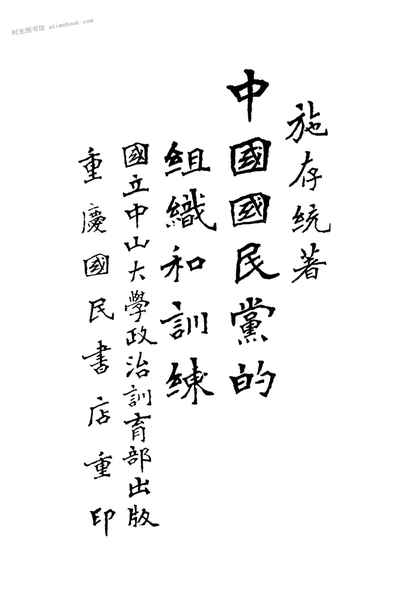 施存統著
中國國民黨的
組織和訓練
國立中山大學政治訓育部出版
重慶國民書店重印